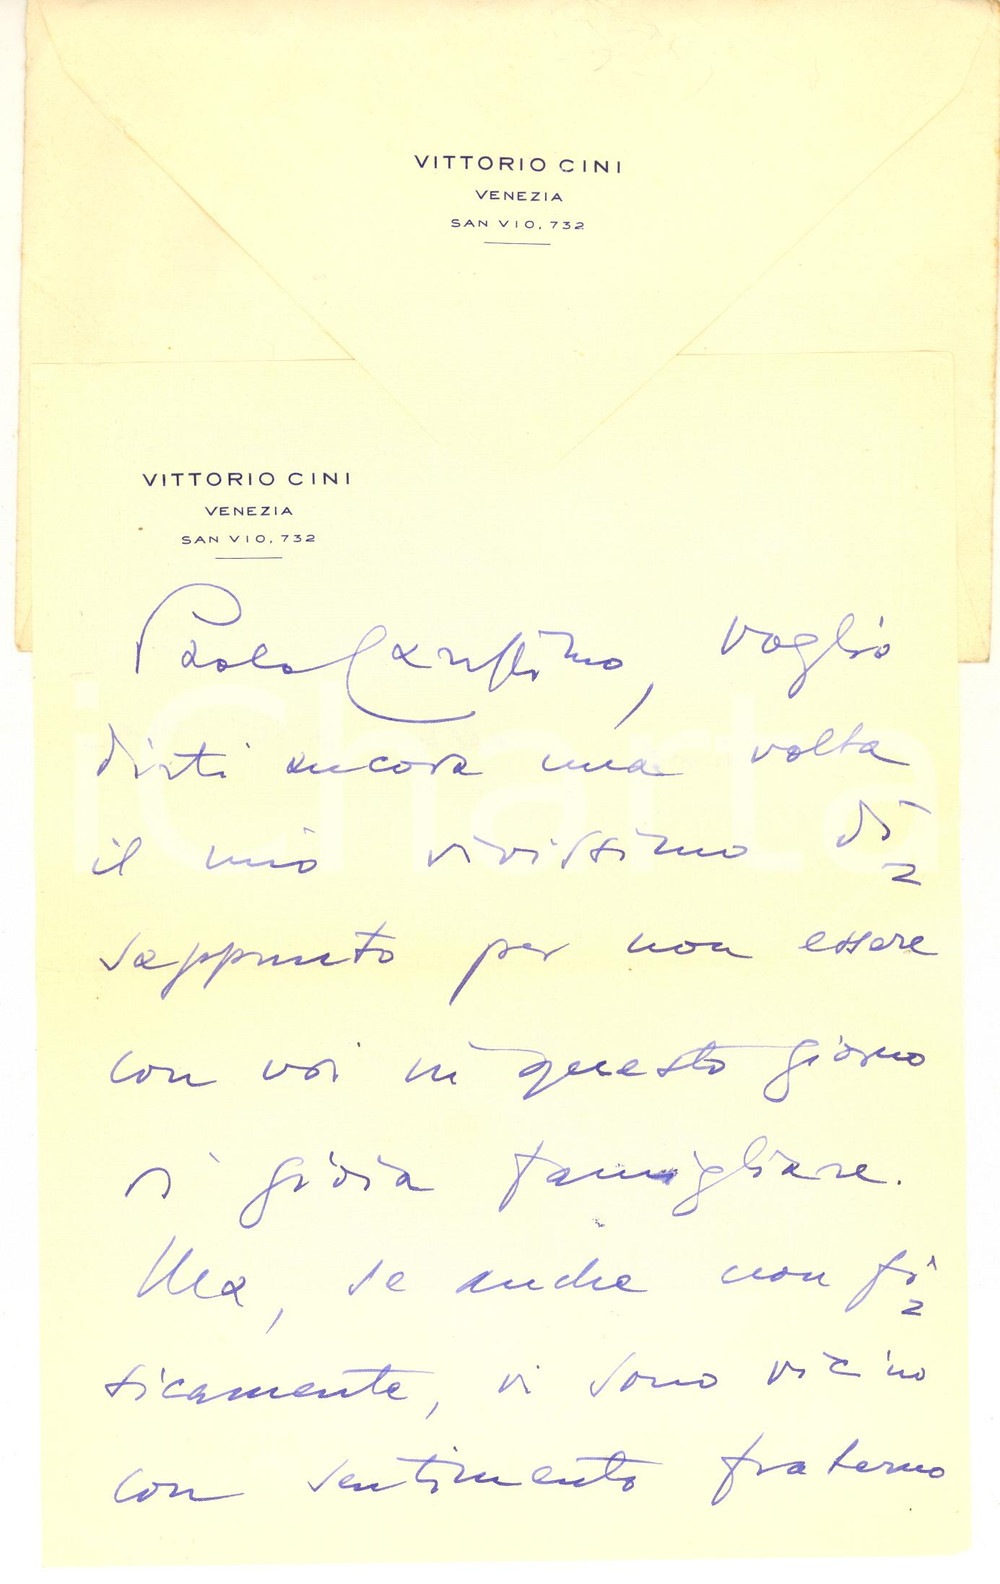 VITTORIO CINI
VENEZIA
SAN VIO, 732
VITTORIO CINI
VENEZIA
SAN VIO, 732
Paolo Carissimo, voglio
dirti ancora una volta
il mio vivissimo di=
sappunto per non essere
con voi in questo giorno
di gioia famigliare.
Ma, se anche non fi=
sicamente, vi sono vicino
con sentimento fraterno
iCharta